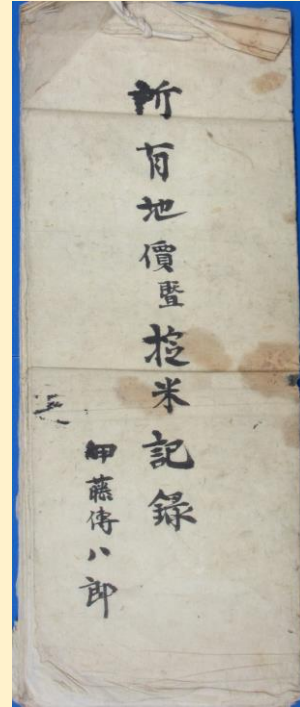 所有地價曁掟米記録
甲藤傳八郎